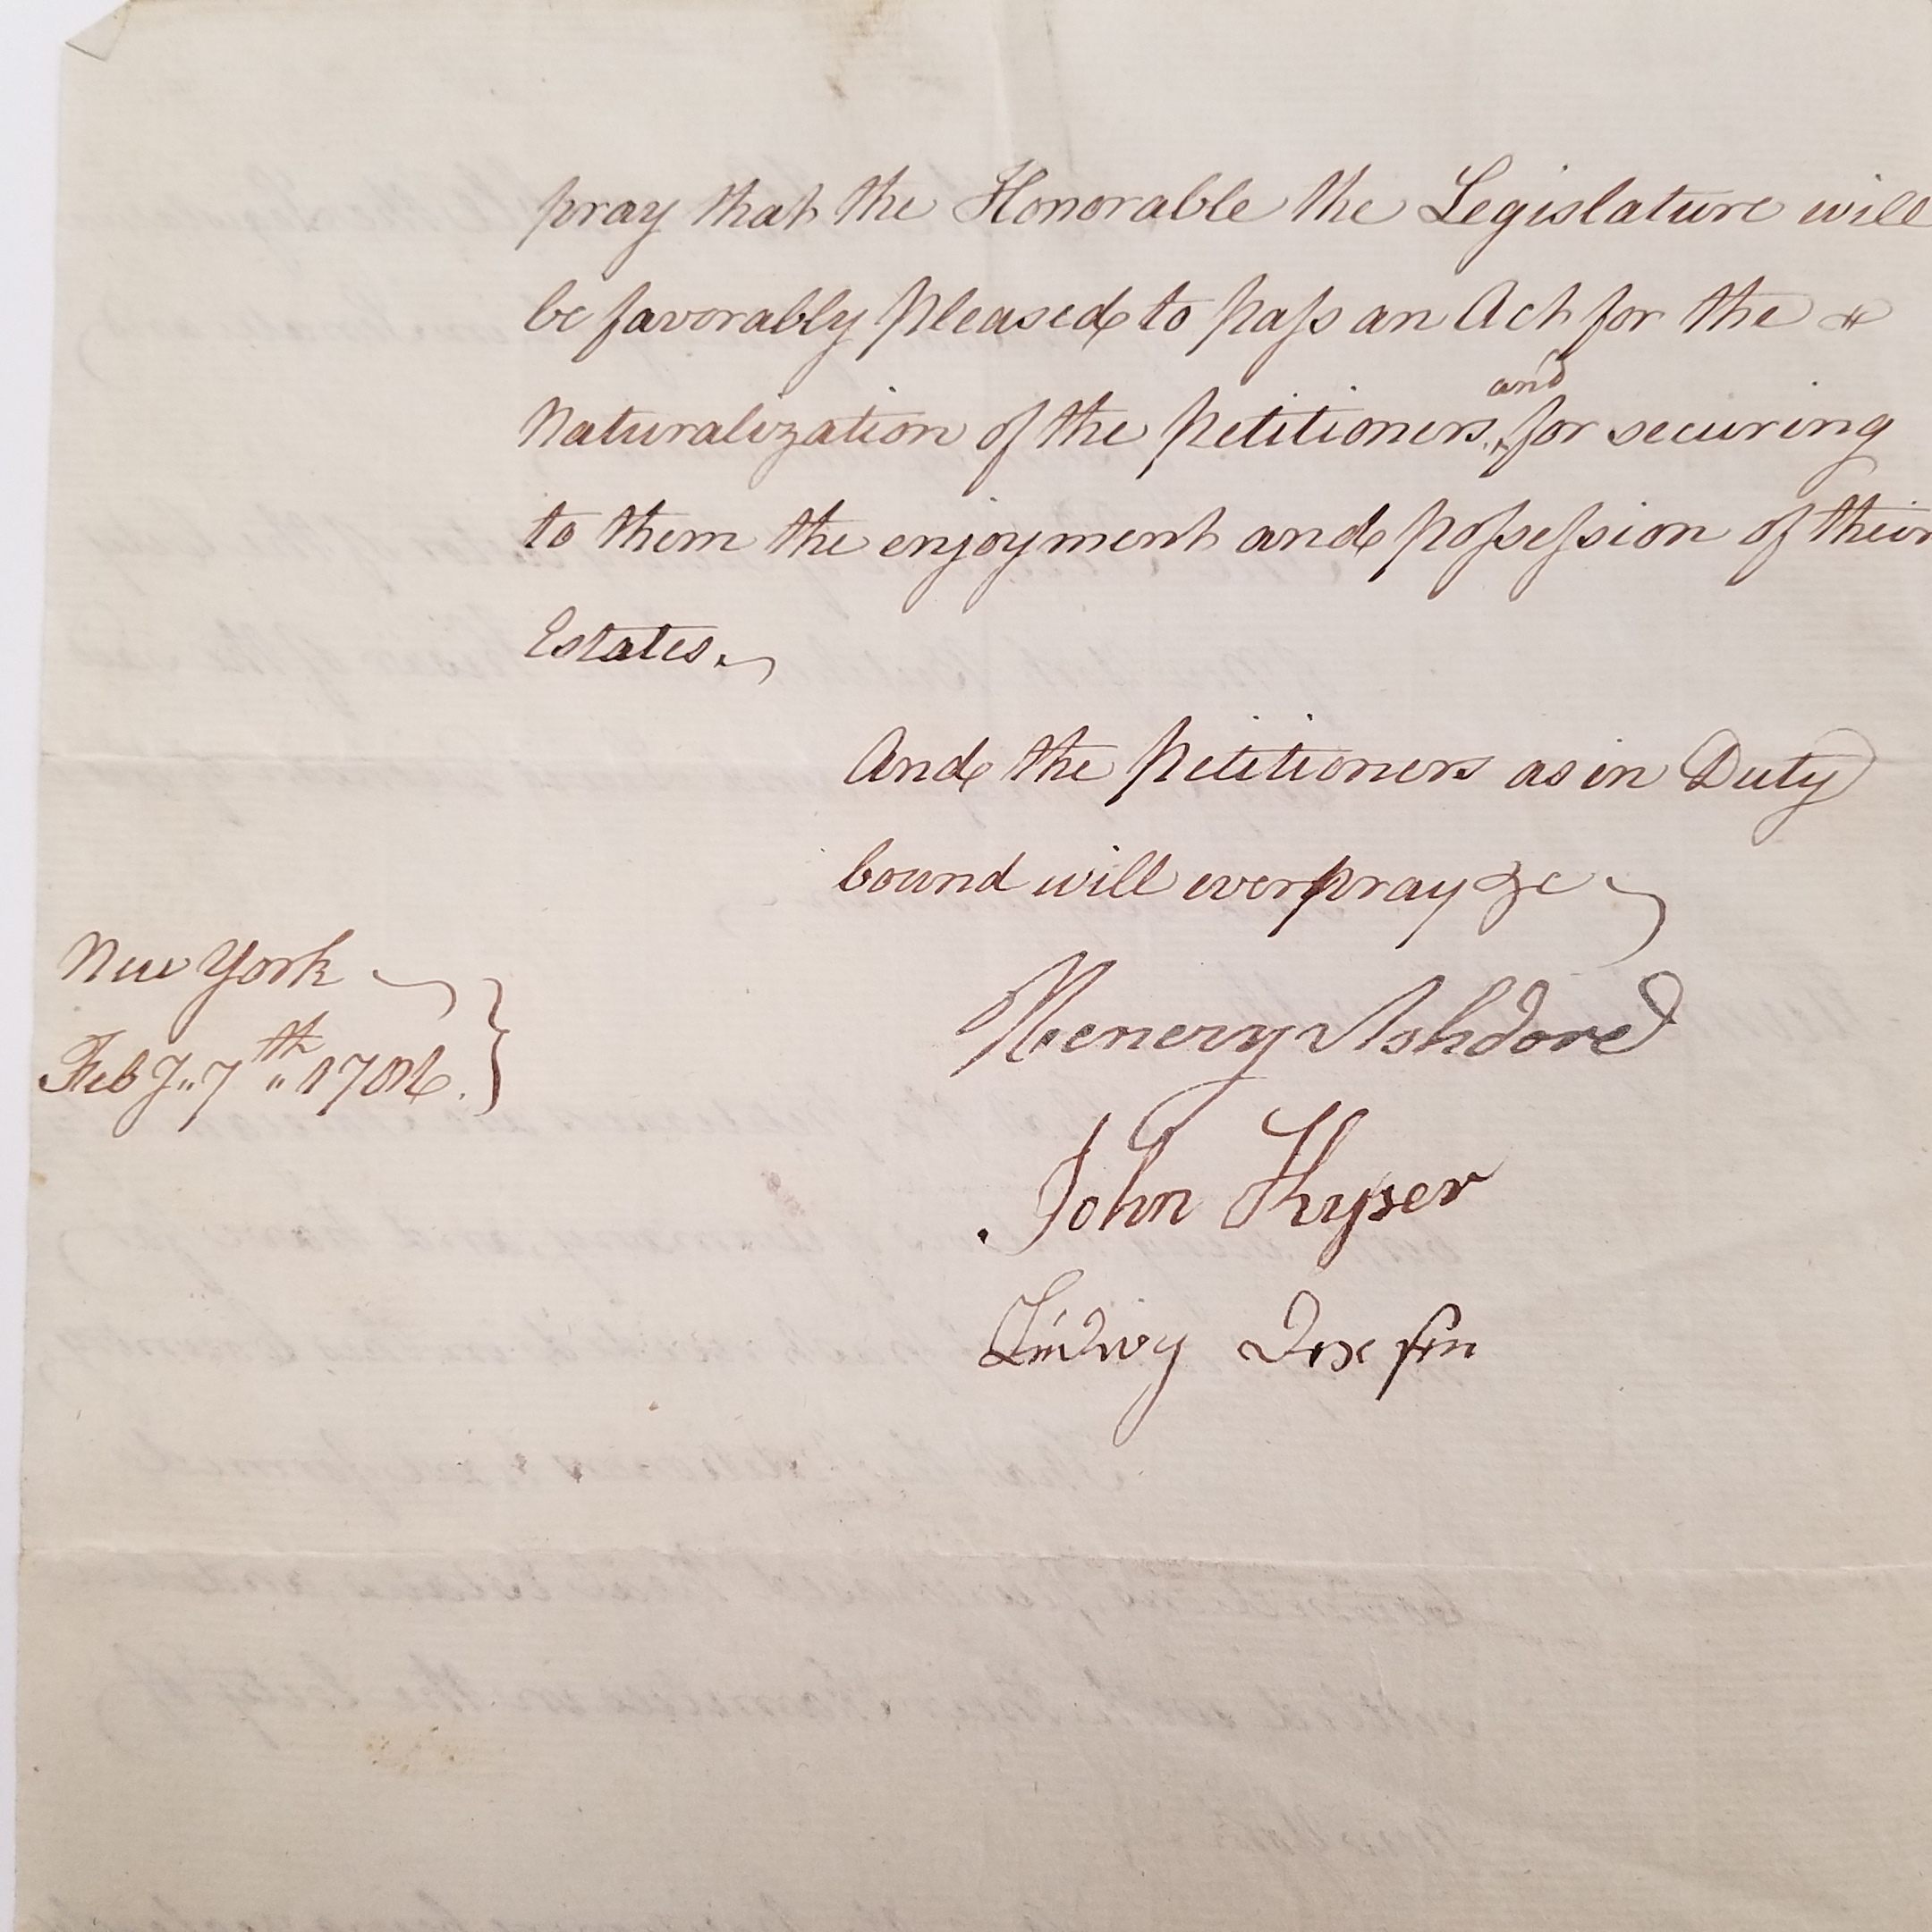 pray that the Honorable the Legislature will
be favorably pleased to pass an Act for the
Naturalization of the petitioners, and for securing
to them the enjoyment and possession of their
Estates.
And the petitioners as in Duty
bound will ever pray &c
New York
Feby 7th 1786.
Henery Ashdore
John Kyser
Ludwig